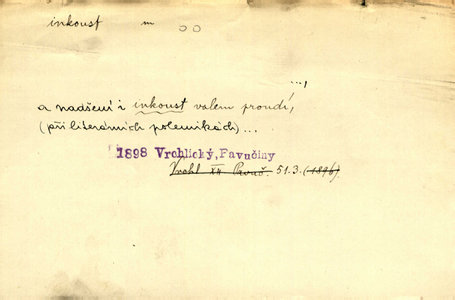 inkoust m
...,
a nadšení i inkoust valem proudí,
(při literárních polemikách)...
1898 Vrchlický, Pavučiny
Vrchl XII Pavuč. 51.3. (1896).